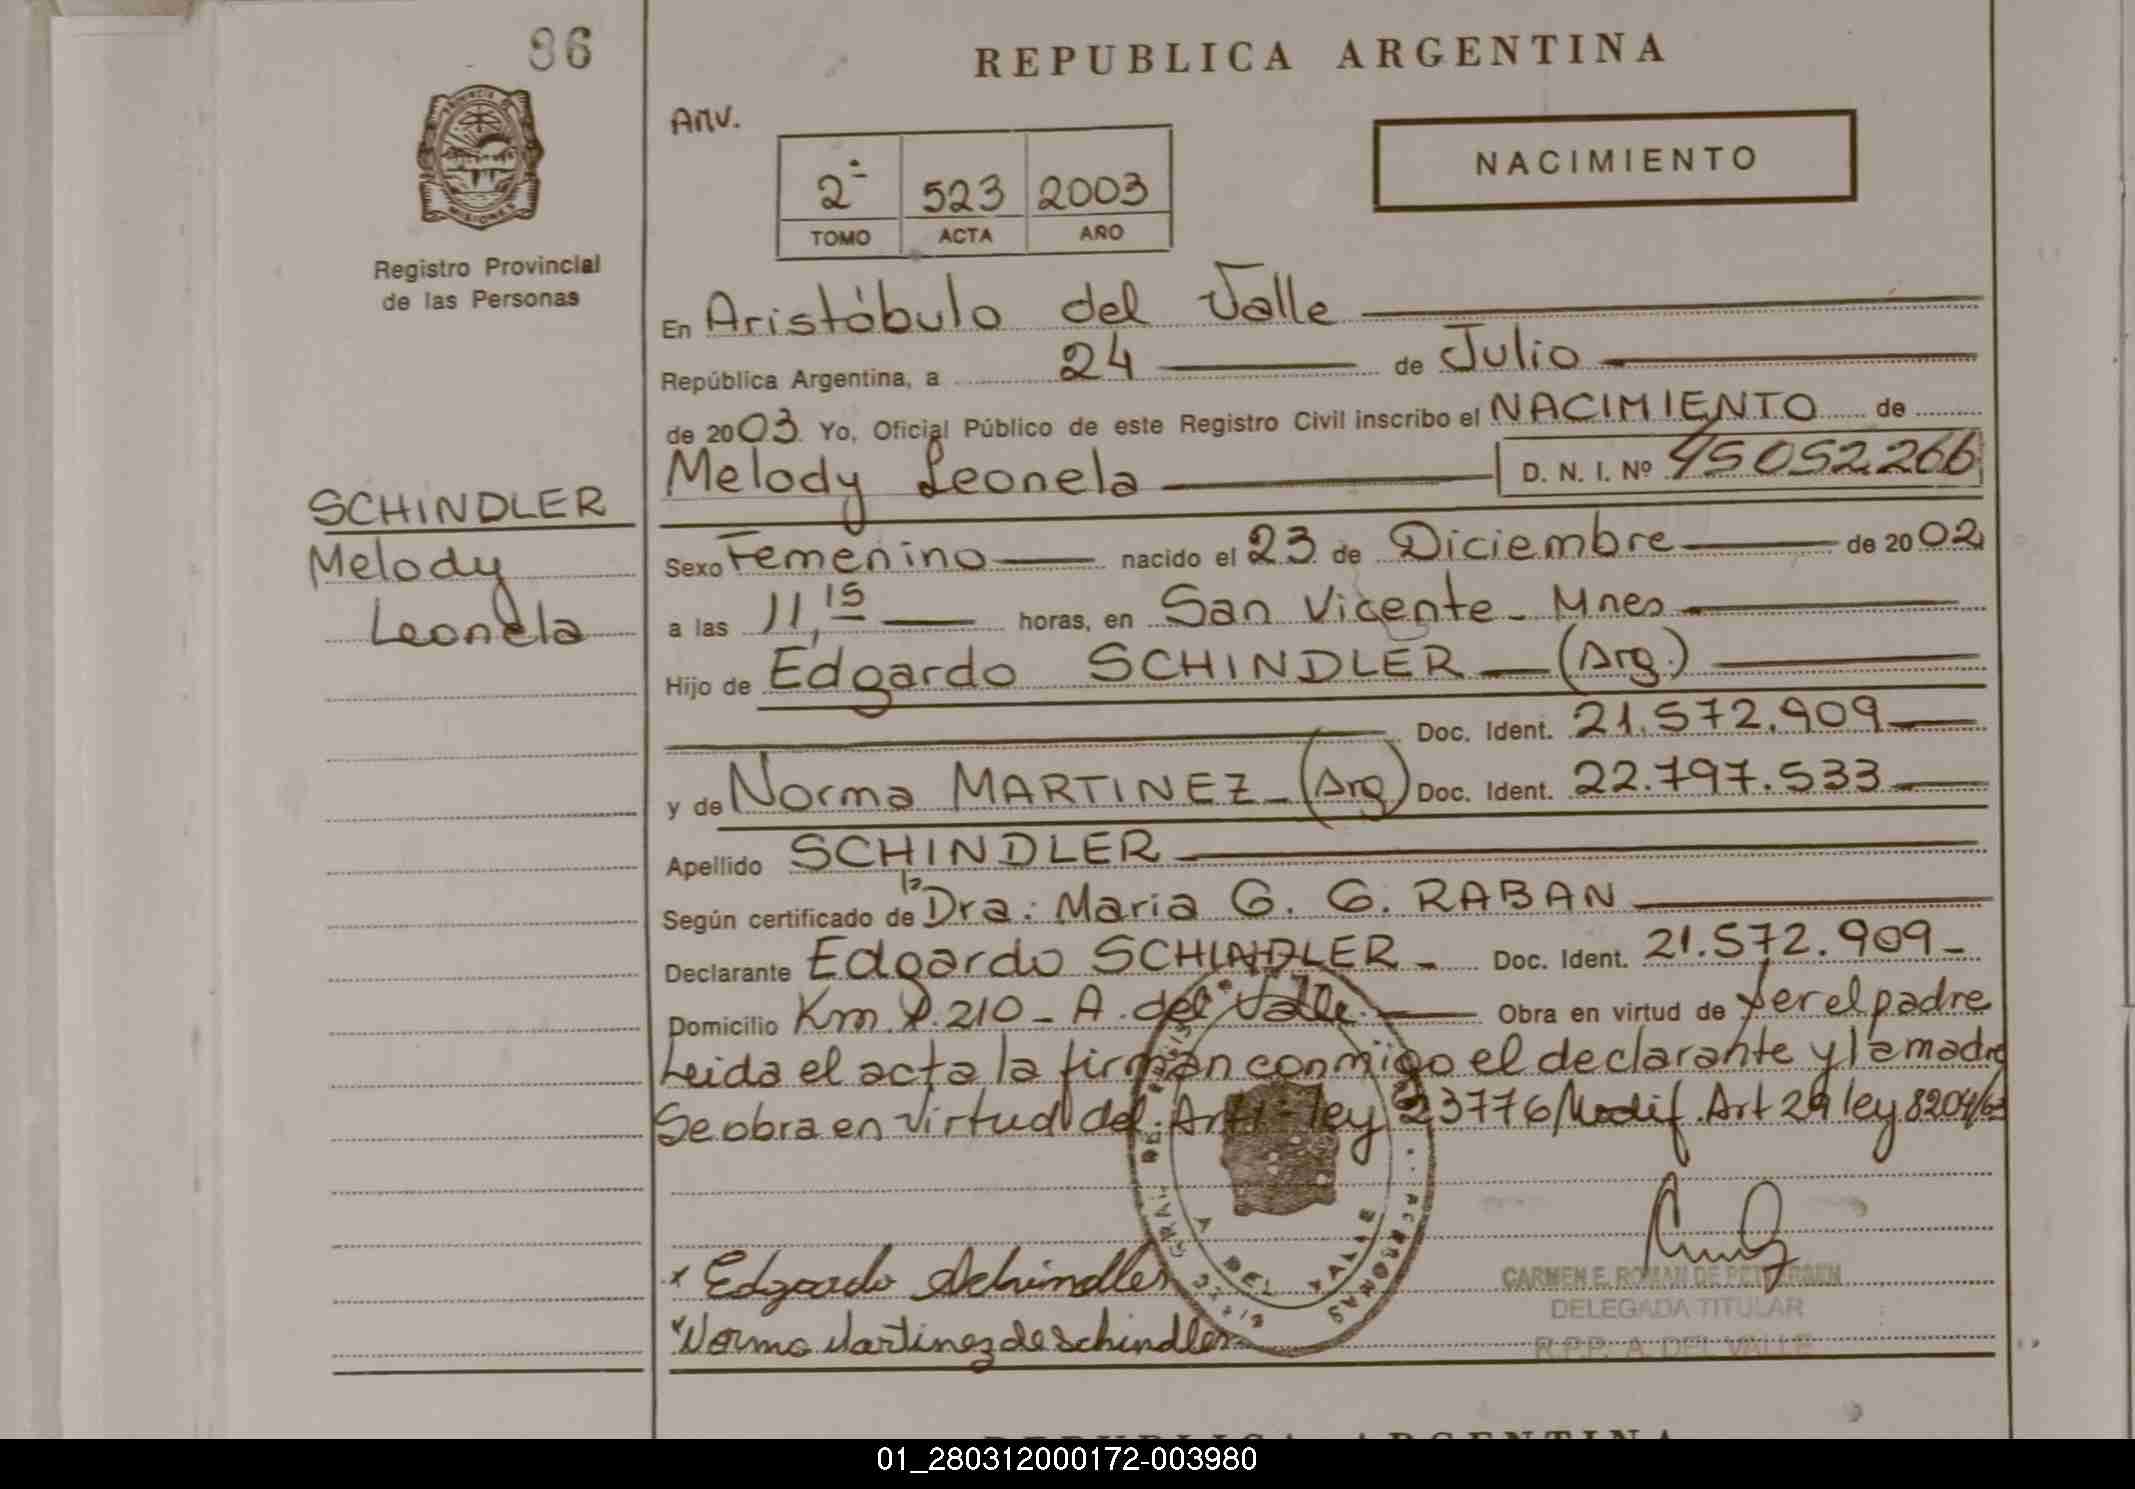 96
REPUBLICA ARGENTINA
PROVINCIA DE
MISIONES
Registro Provincial
de las Personas
Anv.
2º 523 2003
TOMO ACTA AÑO
NACIMIENTO
En Aristóbulo del Valle
República Argentina, a 24 de Julio
de 2003 Yo, Oficial Público de este Registro Civil inscribo el NACIMIENTO de
Melody Leonela D. N. I. Nº 45052266
SCHINDLER
Melody
Leonela
Sexo Femenino nacido el 23 de Diciembre de 2002
a las 11,15 horas, en San Vicente - Mnes
Hijo de Edgardo SCHINDLER (Arg.)
Doc. Ident. 21.572.909
y de Norma MARTINEZ - (Arg) Doc. Ident. 22.797.533
Apellido SCHINDLER
Según certificado de la Dra: Maria G. G. RABAN
Declarante Edgardo SCHINDLER - Doc. Ident. 21.572.909 -
Domicilio Km 210 - A. del Valle. Obra en virtud de ser el padre
Leida el acta, la firman conmigo el declarante y la madre
Se obra en virtud del Art 1º ley 23776 Modif. Art 29 ley 8204/63
Edgardo Schindler
Norma Martinez de Schindler
A DEL VALLE
CARMEN E. ROMAN DE PETERSEN
DELEGADA TITULAR
R.P.P. A. DEL VALLE
REPUBLICA ARGENTINA
01_280312000172-003980